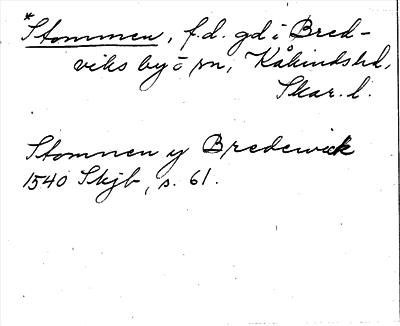 *Stommen, f.d. gd i Bred-
viks by o sn, Kåkindshd,
Skar. l.
Stomnen y Bredewick
1540 Skjb, s. 61.